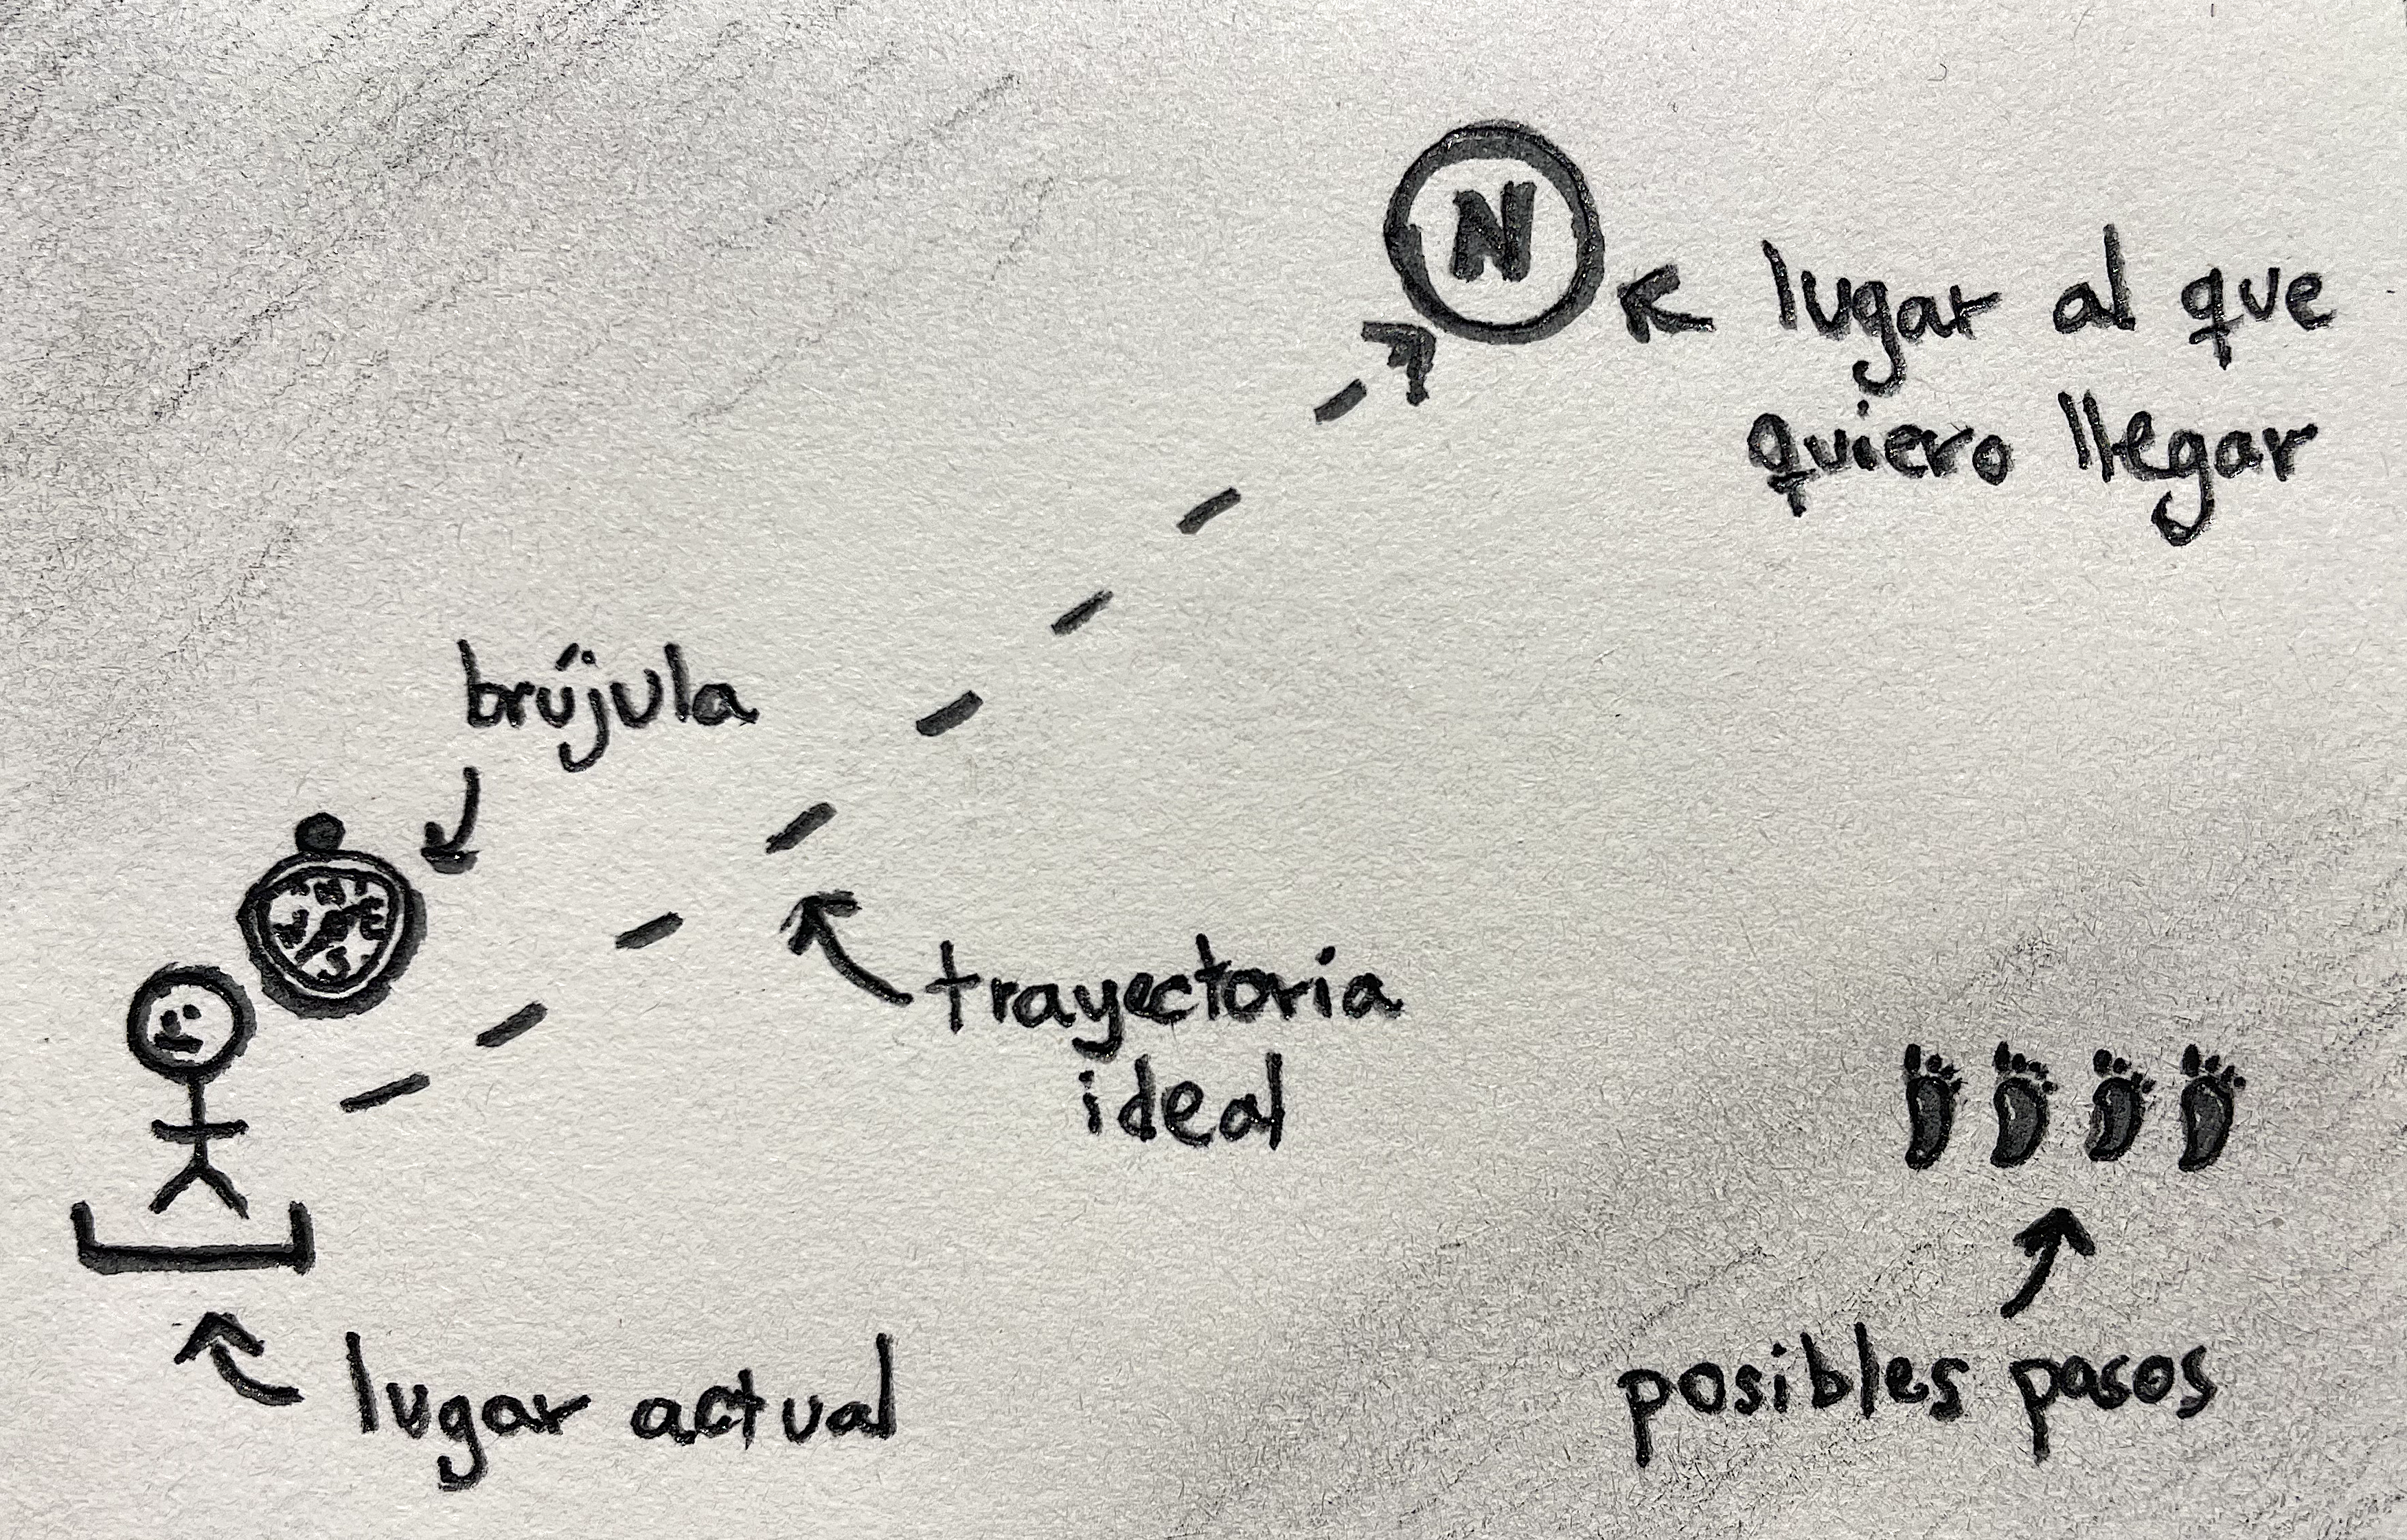 N
lugar al que
quiero llegar
brújula
N
W E
S
trayectoria
ideal
posibles pasos
lugar actual